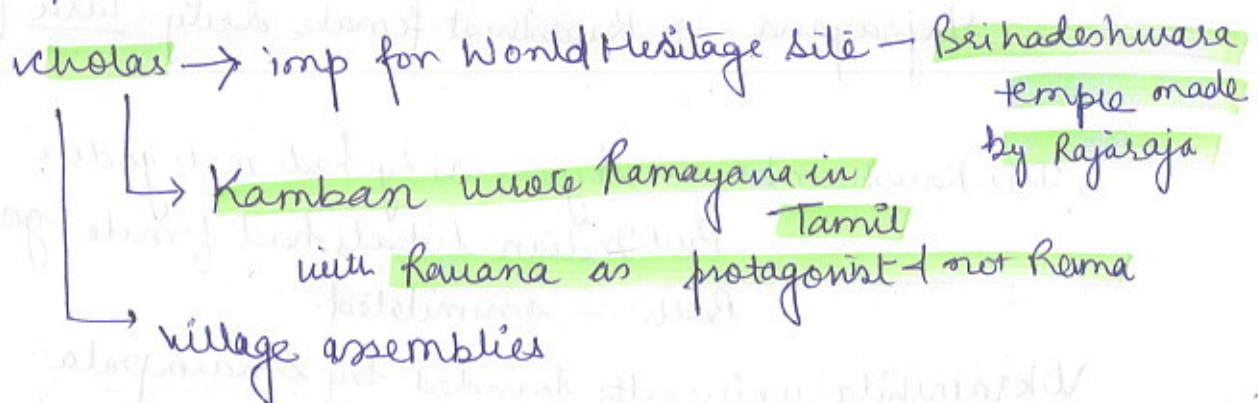 cholas → imp for World Heritage site – Brihadeshwara
temple made
by Rajaraja
→ Kamban wrote Ramayana in
Tamil
with Ravana as protagonist & not Rama
→ village assemblies